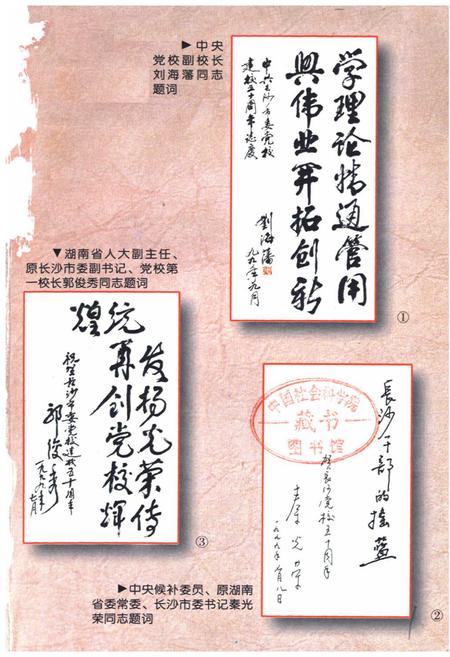 ▶中央
党校副校长
刘海藩同志
题词
学理论精通管用
兴伟业开拓创新
中共长沙市委党校
建校五十周年志庆
刘海藩
一九九九年九月
①
▼湖南省人大副主任、
原长沙市委副书记、党校第
一校长郭俊秀同志题词
发扬光荣传
统再创党校辉
煌
祝贺长沙市委党校建校五十周年
郭俊秀
一九九九年
③
长沙干部的摇篮
贺长沙党校五十周年
秦光荣
一九九九年八月八日
中国社会科学院
藏书
图书馆
②
▶中央候补委员、原湖南
省委常委、长沙市委书记秦光
荣同志题词